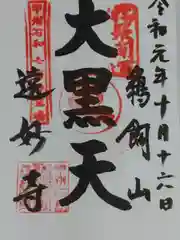 令和元年十月十六日
鵜飼山
大黒天
遠妙寺
甲州石和